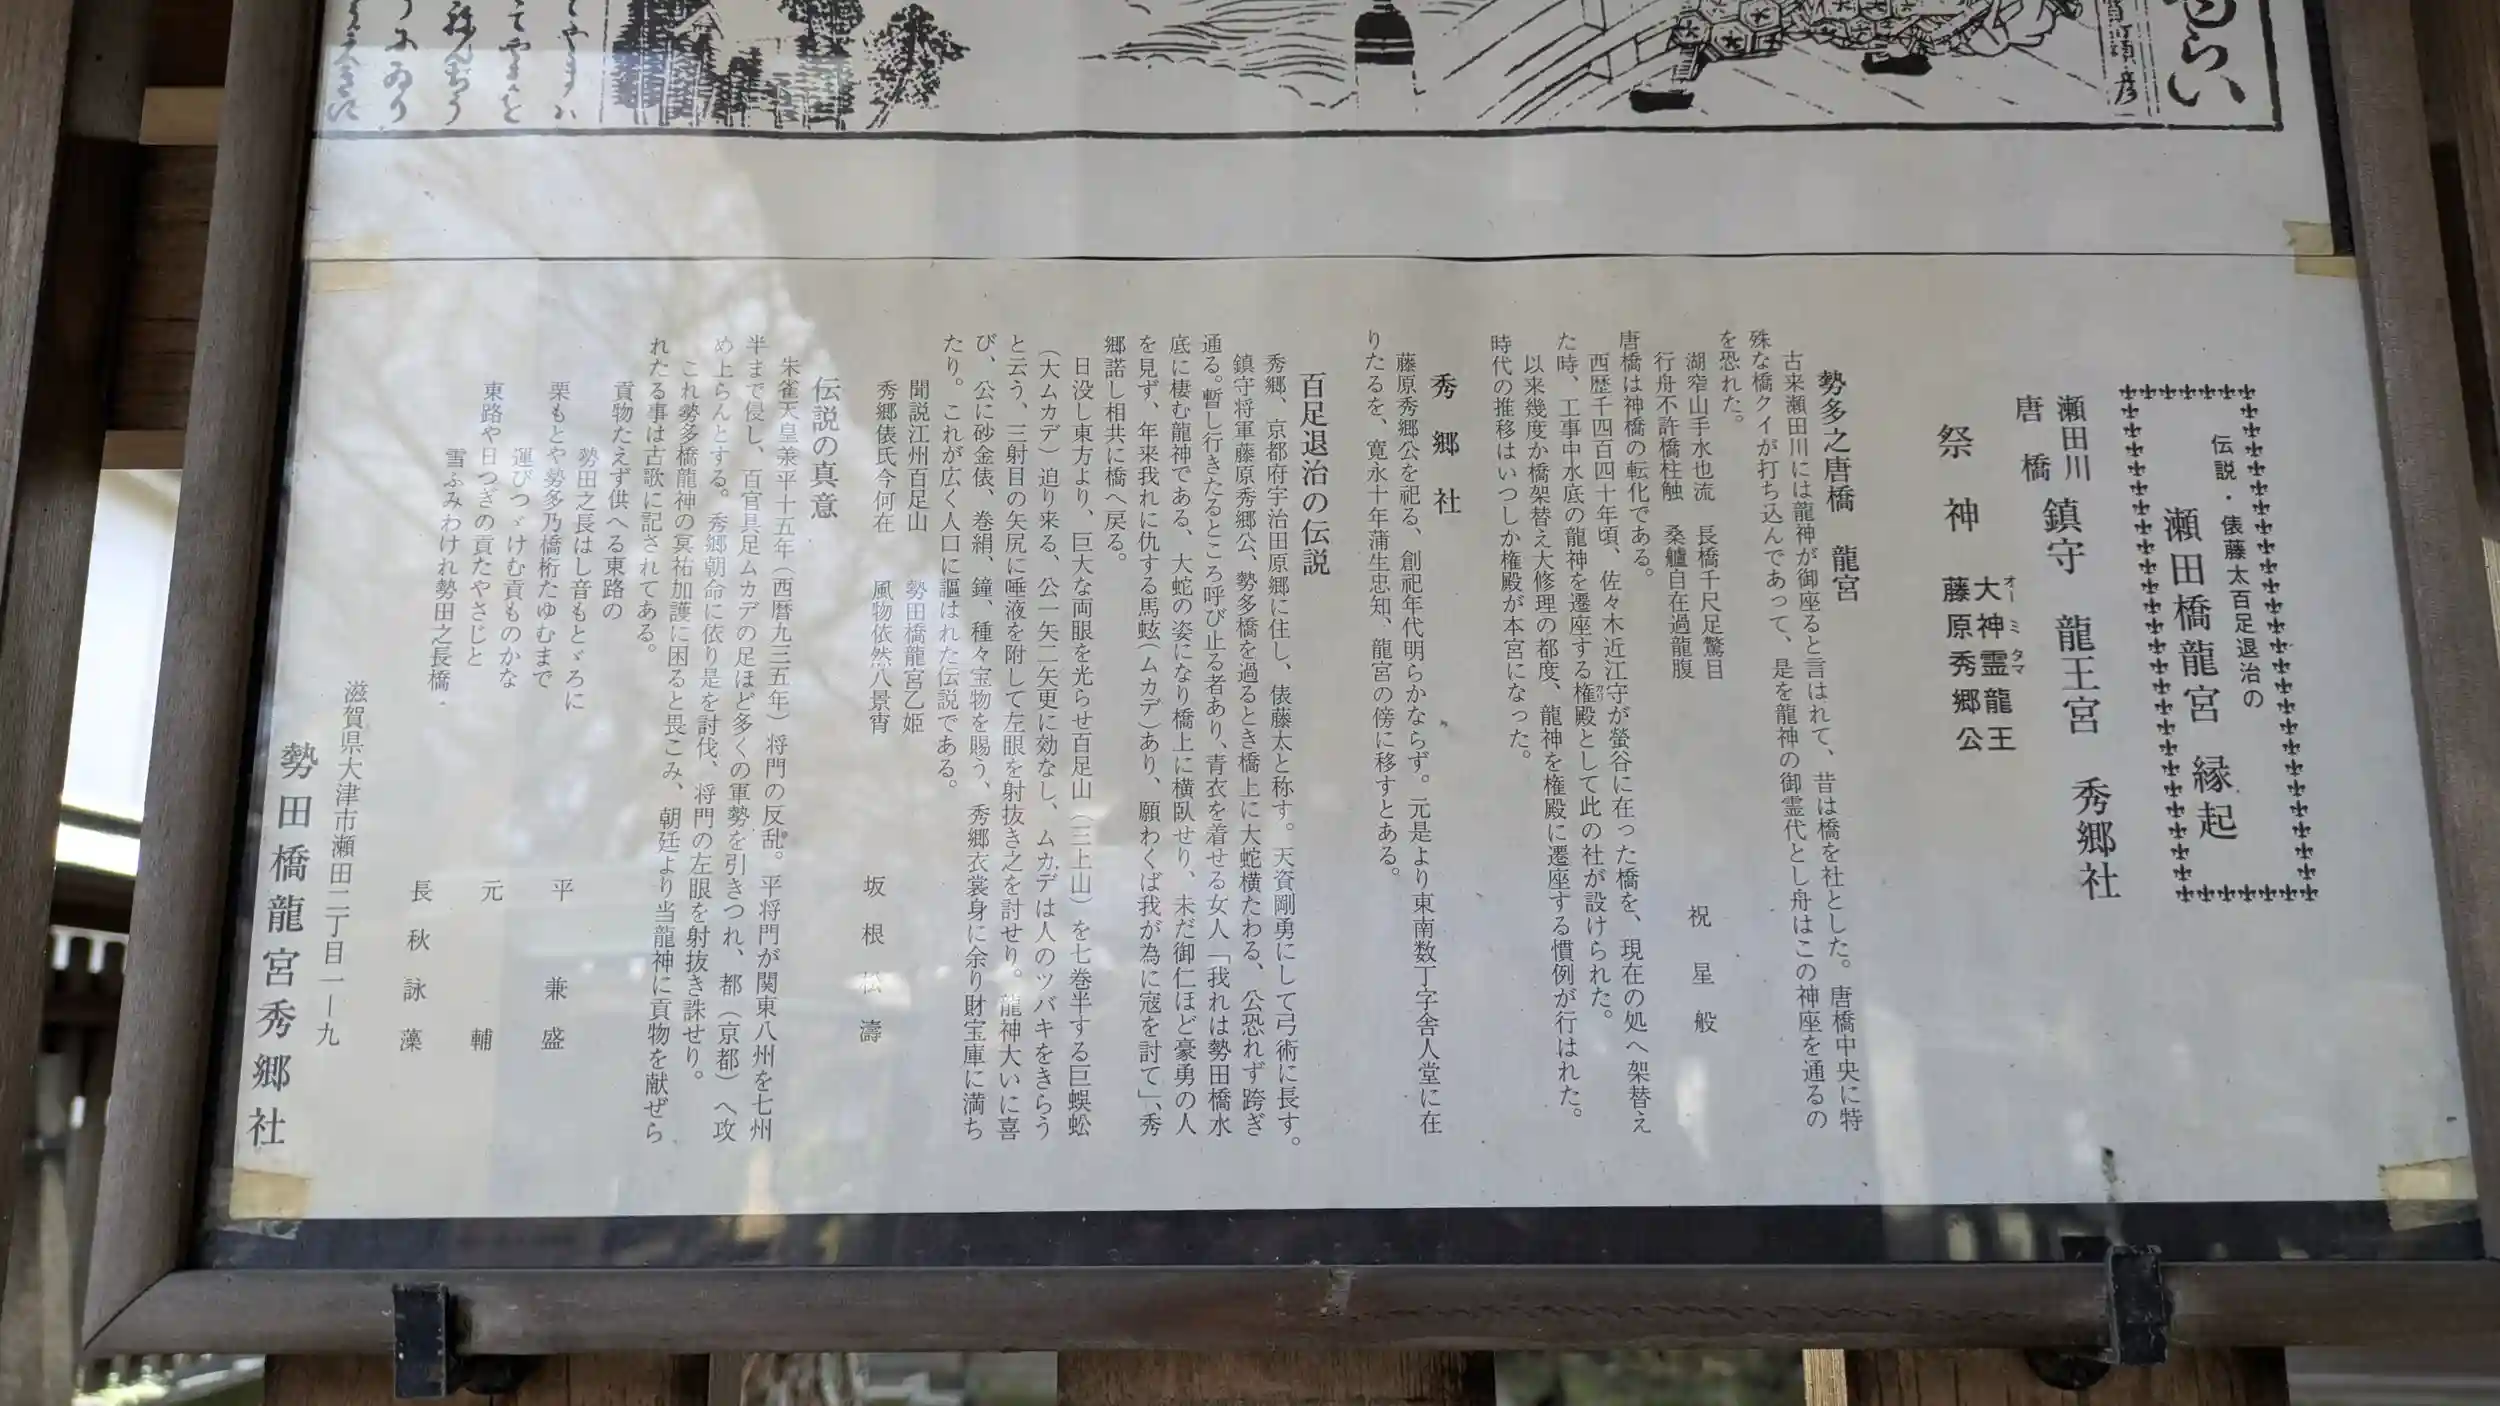 伝説・俵藤太百足退治の
瀬田橋龍宮 縁起
瀬田川
唐橋
鎮守 龍王宮 秀郷社
祭神
大神霊龍王
オーミタマ
藤原秀郷公
勢多之唐橋 龍宮
古来瀬田川には龍神が御座ると言はれて、昔は橋を社とした。唐橋中央に特
殊な橋クイが打ち込んであって、是を龍神の御霊代とし舟はこの神座を通るの
を恐れた。
湖窄山手水也流 長橋千尺足驚目
行舟不許橋柱触 桑艫自在過龍腹
祝星般
唐橋は神橋の転化である。
西歴千四百四十年頃、佐々木近江守が螢谷に在った橋を、現在の処へ架替え
た時、工事中水底の龍神を遷座する権殿として此の社が設けられた。
以来幾度か橋架替え大修理の都度、龍神を権殿に遷座する慣例が行はれた。
時代の推移はいつしか権殿が本宮になった。
秀郷社
藤原秀郷公を祀る、創祀年代明らかならず。元是より東南数丁字舎人堂に在
りたるを、寛永十年蒲生忠知、龍宮の傍に移すとある。
百足退治の伝説
秀郷、京都府宇治田原郷に住し、俵藤太と称す。天資剛勇にして弓術に長す。
鎮守将軍藤原秀郷公、勢多橋を過るとき橋上に大蛇横たわる、公恐れず跨ぎ
通る。暫し行きたるところ呼び止る者あり、青衣を着せる女人「我れは勢田橋水
底に棲む龍神である、大蛇の姿になり橋上に横臥せり、未だ御仁ほど豪勇の人
を見ず、年来我れに仇する馬蚿(ムカデ)あり、願わくば我が為に寇を討て」、秀
郷諾し相共に橋へ戻る。
日没し東方より、巨大な両眼を光らせ百足山(三上山)を七巻半する巨蜈蚣
(大ムカデ)迫り来る、公一矢二矢更に効なし、ムカデは人のツバキをきらう
と云う、三射目の矢尻に唾液を附して左眼を射抜き之を討せり。龍神大いに喜
び、公に砂金俵、巻絹、鐘、種々宝物を賜う、秀郷衣裳身に余り財宝庫に満ち
たり。これが広く人口に謳はれた伝説である。
聞説江州百足山 勢田橋龍宮乙姫
秀郷俵氏今何在 風物依然八景宵
坂根松濤
伝説の真意
朱雀天皇承平十五年(西暦九三五年)将門の反乱。平将門が関東八州を七州
半まで侵し、百官具足ムカデの足ほど多くの軍勢を引きつれ、都(京都)へ攻
め上らんとする。秀郷朝命に依り是を討伐、将門の左眼を射抜き誅せり。
これ勢多橋龍神の冥祐加護に困ると畏こみ、朝廷より当龍神に貢物を献ぜら
れたる事は古歌に記されてある。
貢物たえず供へる東路の
勢田之長はし音もとゞろに
平兼盛
栗もとや勢多乃橋桁たゆむまで
運びつゞけむ貢ものかな
元輔
東路や日つぎの貢たやさじと
雪ふみわけれ勢田之長橋.
長秋詠藻
滋賀県大津市瀬田二丁目一ー九
勢田橋龍宮秀郷社